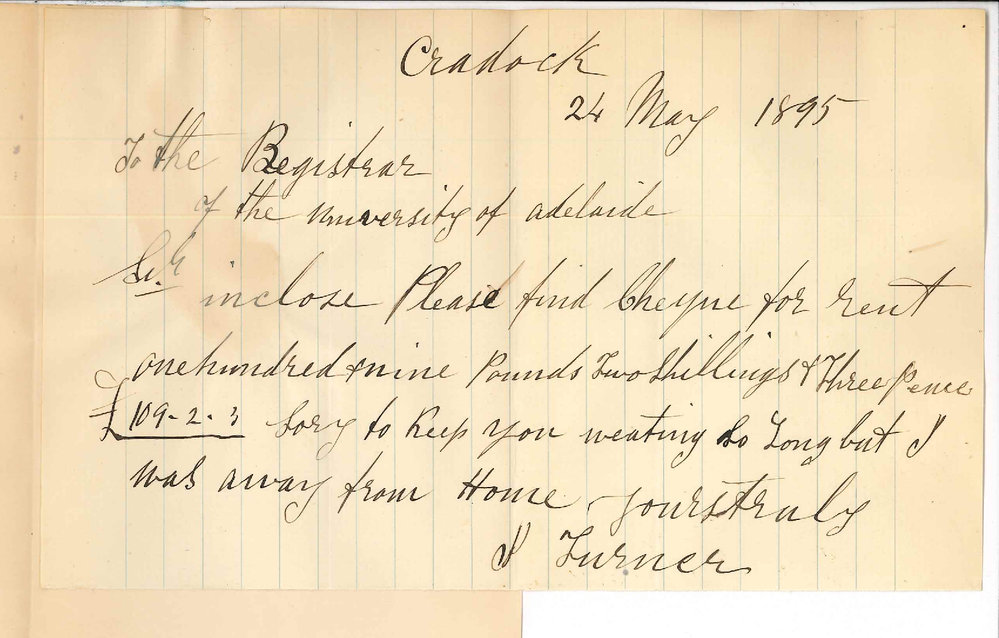 Cradock
24 May 1895
To the Registrar
of the university of adelaide
Sir
inclose Please find Cheque for rent
one hundred & nine Pounds Two Shillings & Three Pence
£109-2-3 Sory to Keep you weating So Long but I
was away from Home yours truly
J Turner